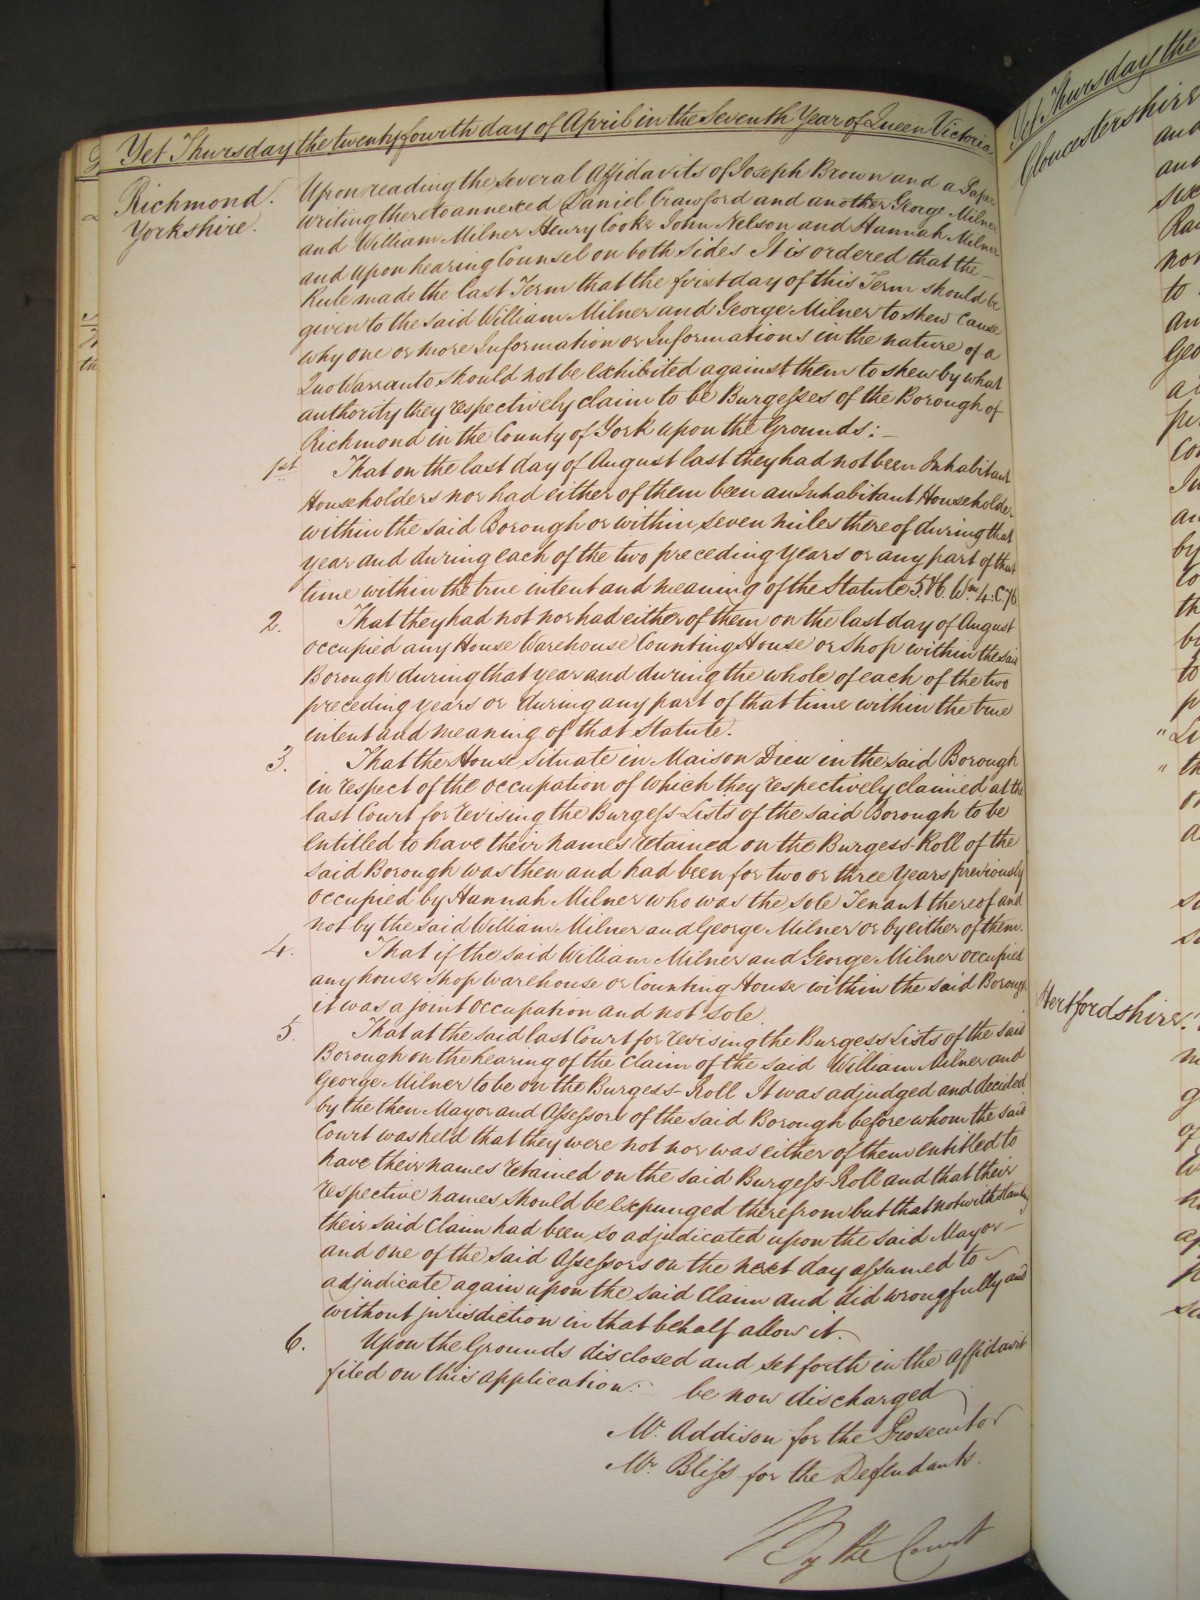 Yet Thursday the twenty fourth day of April in the Seventh Year of Queen Victoria
Richmond.
Yorkshire.
Upon reading the several Affidavits of Joseph Brown and a Paper
writing thereto annexed Daniel Crawford and another George Milner
and William Milner Henry Cooke John Nelson and Hannah Milner
and upon hearing Counsel on both sides It is ordered that the
Rule made the last Term that the first day of this Term should be
given to the said William Milner and George Milner to shew cause
why one or more Information or Informations in the nature of a
Quo Warranto should not be exhibited against them to shew by what
authority they respectively claim to be Burgesses of the Borough of
Richmond in the County of York upon the Grounds:—
1st. That on the last day of August last they had not been Inhabitant
Householders nor had either of them been an Inhabitant Householder
within the said Borough or within seven miles thereof during that
year and during each of the two preceding years or any part of that
time within the true intent and meaning of the Statute 5 & 6. Wm. 4. C. 76
2. That they had not nor had either of them on the last day of August
occupied any House Warehouse Counting House or Shop within the said
Borough during that year and during the whole of each of the two
preceding years or during any part of that time within the true
intent and meaning of that Statute.
3. That the House situate in Maison Dieu in the said Borough
in respect of the occupation of which they respectively claimed at the
last Court for revising the Burgess Lists of the said Borough to be
entitled to have their names retained on the Burgess Roll of the
said Borough was then and had been for two or three Years previously
occupied by Hannah Milner who was the sole Tenant thereof and
not by the said William Milner and George Milner or by either of them.
4. That if the said William Milner and George Milner occupied
any house shop warehouse or Counting House within the said Borough
it was a joint occupation and not sole.
5. That at the said last Court for revising the Burgess Lists of the said
Borough on the hearing of the claim of the said William Milner and
George Milner to be on the Burgess Roll It was adjudged and decided
by the then Mayor and Assessors of the said Borough before whom the said
Court was held that they were not nor was either of them entitled to
have their names retained on the said Burgess Roll and that their
respective names should be expunged therefrom but that notwithstanding
their said claim had been so adjudicated upon the said Mayor
and one of the said Assessors on the next day assumed to
adjudicate again upon the said claim and did wrongfully and
without jurisdiction in that behalf allow it.
6. Upon the Grounds disclosed and set forth in the affidavit
filed on this application:— be now discharged
Mr. Addison for the Prosecutor
Mr. Bliss for the Defendants.
By the Court
Yet Thursday the
Gloucestershire
Hertfordshire.